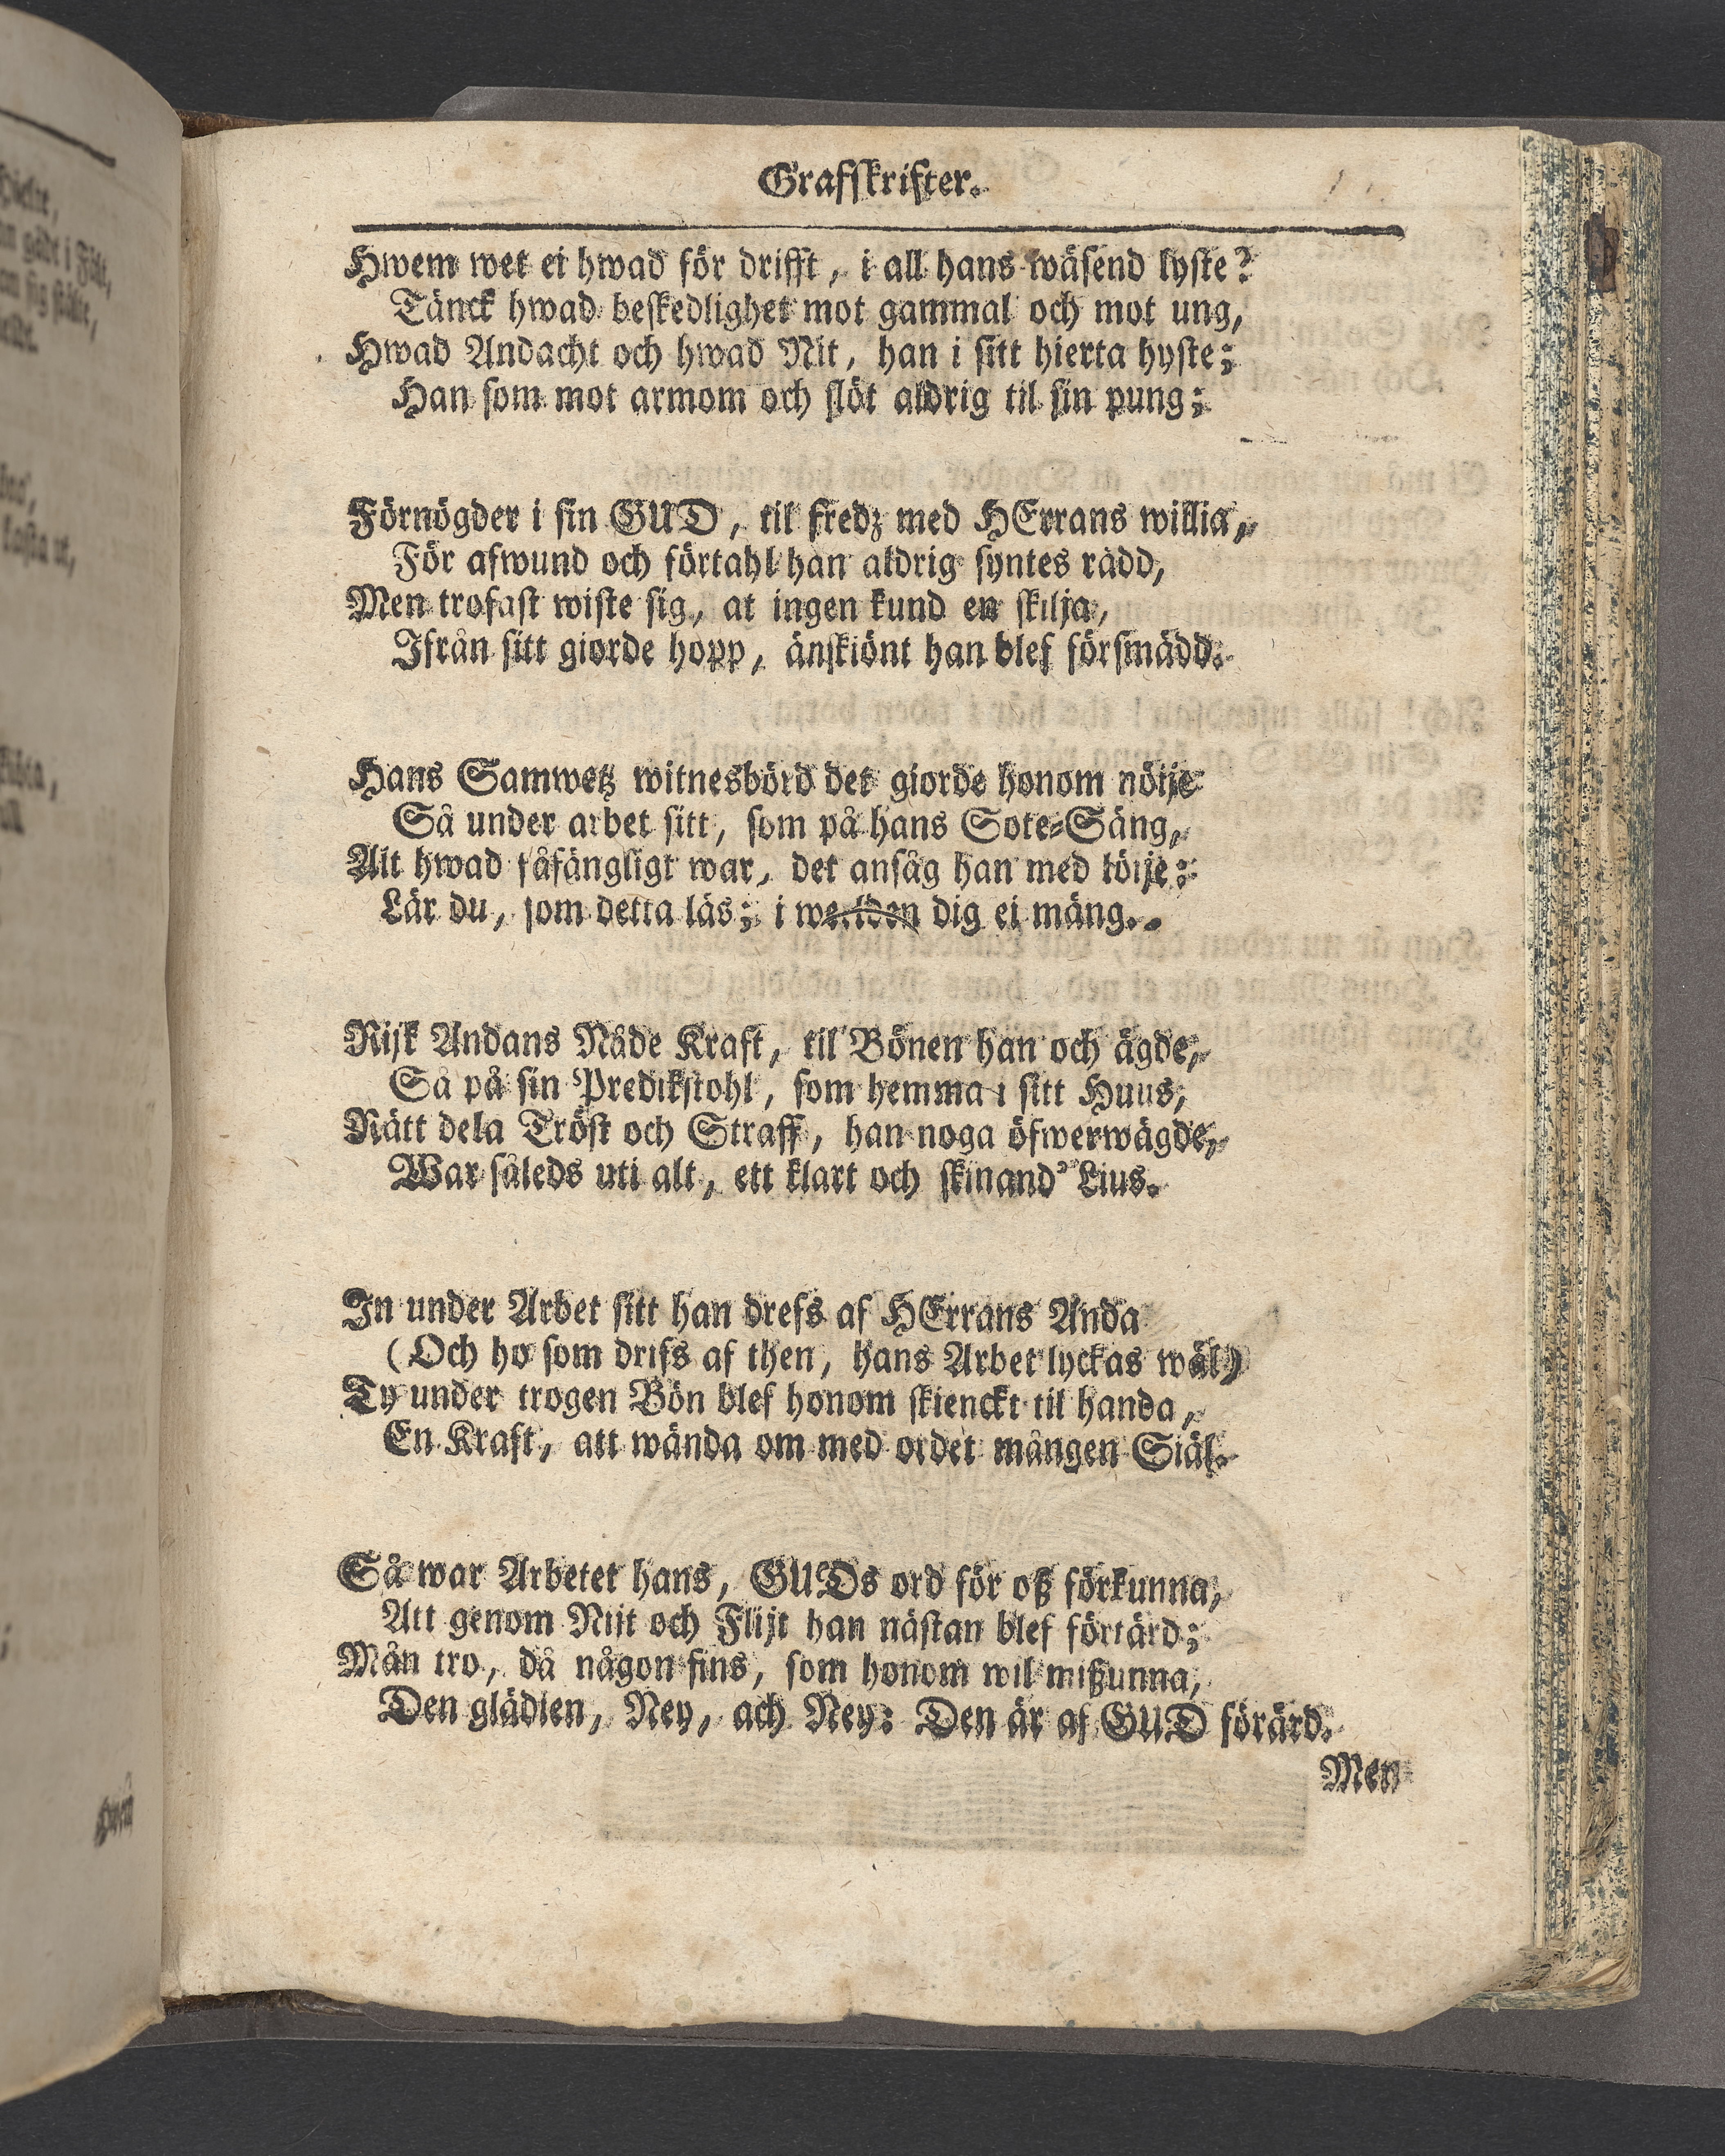 Grafskrifter.
Hwem wet ei hwad för drifft, i all hans wäsend lyste?
Tänck hwad beskedlighet mot gammal och mot ung,
Hwad Andacht och hwad Nit, han i sitt hierta hyste;
Han som mot armom och slöt aldrig til sin pung;
Förnögder i sin GUD, til fredz med HErrans willia,
För afwund och förtahl han aldrig syntes rädd,
Men trofast wiste sig, at ingen kund en skilja,
Ifrån sitt giorde hopp, änskiönt han blef försmädd.
Hans Samwetz witnesbörd det giorde honom nötje
Så under arbet sitt, som på hans Sote-Säng,
Alt hwad fåfängligt war, det ansåg han med löije:
Lär du, som detta läs; i werlden dig ei mäng.
Rijk Andans Nåde Kraft, til Bönen han och ägde,
Så på sin Predikstohl, som hemma i sitt Huus,
Rätt dela Tröst och Straff, han noga öfwerwägde,
War såleds uti alt, ett klart och skinand' Lius.
In under Arbet sitt han drefs af HErrans Anda
(Och ho som drifs af then, hans Arbet lyckas wäl)
Ty under trogen Bön blef honom skienckt til handa,
En Kraft, att wända om med ordet mången Siäl.
Så war Arbetet hans, GUDs ord för oß förkunna,
Att genom Nijt och Flijt han nästan blef förtärd;
Mån tro, då någon fins, som honom wil mißunna,
Den glädien, Ney, ach Ney: Den är af GUD förärd.
Men